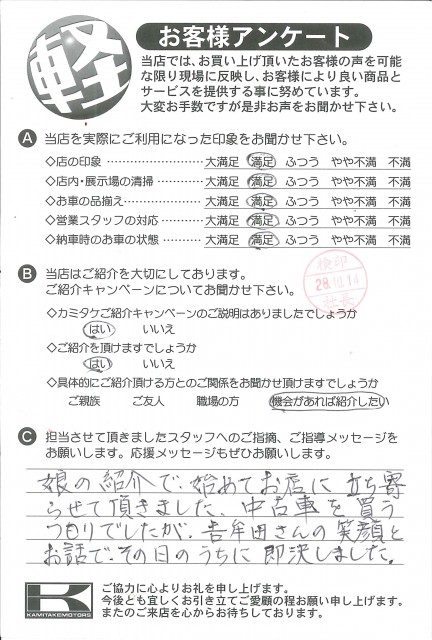 軽
お客様アンケート
当店では、お買い上げ頂いたお客様の声を可能
な限り現場に反映し、お客様により良い商品と
サービスを提供する事に努めています。
大変お手数ですが是非お声をお聞かせ下さい。
A 当店を実際にご利用になった印象をお聞かせ下さい。
◇店の印象 …………………… 大満足 満足 ふつう やや不満 不満
◇店内・展示場の清掃 ………… 大満足 満足 ふつう やや不満 不満
◇お車の品揃え………………… 大満足 満足 ふつう やや不満 不満
◇営業スタッフの対応 ………… 大満足 満足 ふつう やや不満 不満
◇納車時のお車の状態 ………… 大満足 満足 ふつう やや不満 不満
B 当店はご紹介を大切にしております。
ご紹介キャンペーンについてお聞かせ下さい。
検印
28.10.14
社長
◇カミタケご紹介キャンペーンのご説明はありましたでしょうか
はい いいえ
◇ご紹介を頂けますでしょうか
はい いいえ
◇具体的にご紹介頂ける方とのご関係をお聞かせ頂けますでしょうか
ご親族 ご友人 職場の方 機会があれば紹介したい
C 担当させて頂きましたスタッフへのご指摘、ご指導メッセージを
お願いします。応援メッセージもぜひお願いします。
娘の紹介で、始めてお店に立ち寄
らせて頂きました、中古車を買う
つもりでしたが、吉牟田さんの笑顔と
お話で、その日のうちに即決しました。
K
KAMITAKEMOTORS
ご協力に心よりお礼を申し上げます。
今後とも宜しくお引き立てご愛顧の程お願い申し上げます。
またのご来店を心からお待ちしております。